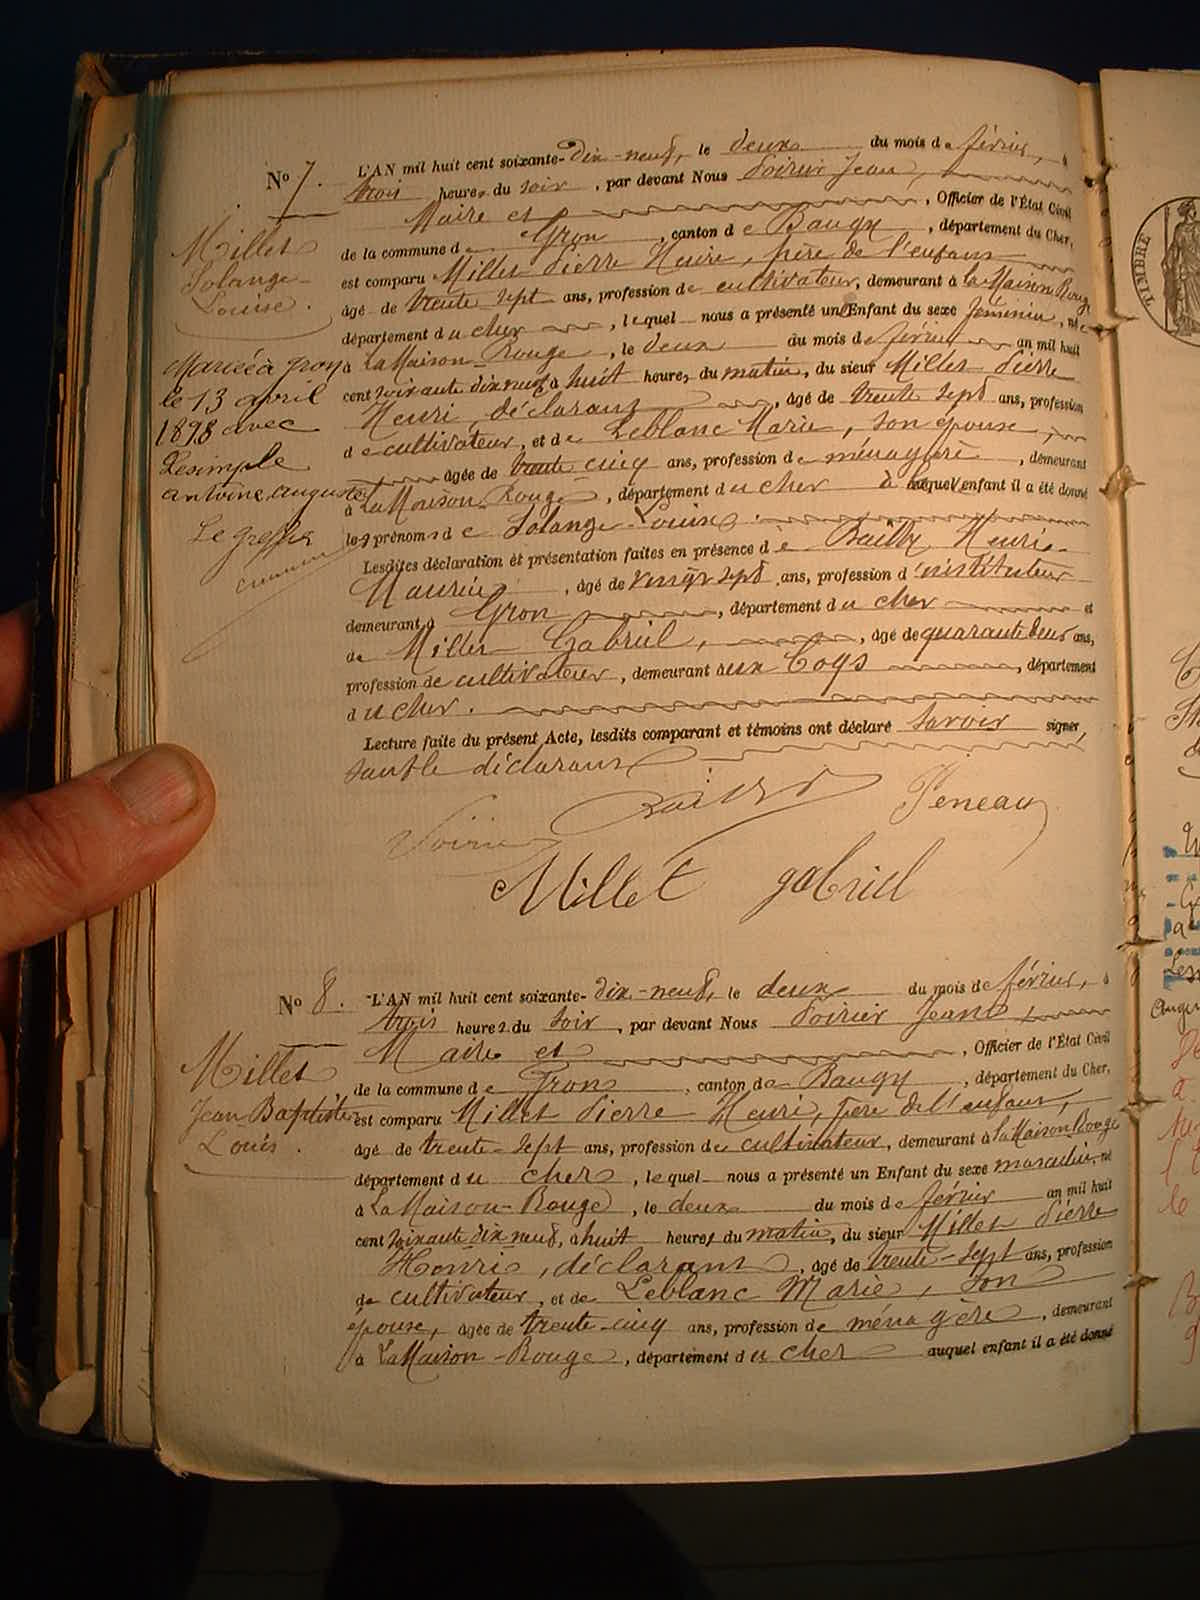 N° 7.
Millet
Solange
Louise.
Mariée à Gron
le 13 avril
1898 avec
Lesimple
antoine, auguste
Le greffier
L'AN mil huit cent soixante-dix-neuf, le deux du mois de février, à
trois heures du soir, par devant Nous Poirier Jean,
Maire et , Officier de l'État Civil
de la commune de Gron, canton de Baugy, département du Cher,
est comparu Millet Pierre Henri, père de l'enfant
âgé de trente sept ans, profession de cultivateur, demeurant à la Maison Rouge
département du cher, lequel nous a présenté un Enfant du sexe féminin, née
à La Maison-Rouge, le deux du mois de février an mil huit
cent soixante dix neuf à huit heures du matin, du sieur Millet Pierre
Henri, déclarant, âgé de trente sept ans, profession
de cultivateur, et de Leblanc Marie, son épouse,
âgée de trente cinq ans, profession de ménagère, demeurant
à La Maison-Rouge, département du cher à laquel enfant il a été donné
les prénoms de Solange-Louise.
Lesdites déclaration et présentation faites en présence de Henri
Maurice, âgé de vingt sept ans, profession d'instituteur
demeurant à Gron, département du cher et
de Millet Gabriel, âgé de quarante deux ans,
profession de cultivateur, demeurant aux Coqs, département
du cher.
Lecture faite du présent Acte, lesdits comparant et témoins ont déclaré savoir signer,
sauf le déclarant
Poirier
Millet gabriel
N° 8.
Millet
Jean Baptiste
Louis.
L'AN mil huit cent soixante-dix-neuf, le deux du mois de février, à
trois heures du soir, par devant Nous Poirier Jean,
Maire et , Officier de l'État Civil
de la commune de Gron, canton de Baugy, département du Cher,
est comparu Millet Pierre Henri, père de l'enfant,
âgé de trente-sept ans, profession de cultivateur, demeurant à la Maison Rouge
département du cher, lequel nous a présenté un Enfant du sexe masculin, né
à La Maison-Rouge, le deux du mois de février an mil huit
cent soixante dix neuf, à huit heures du matin, du sieur Millet Pierre
Henri, déclarant, âgé de trente-sept ans, profession
de cultivateur, et de Leblanc Marie, son
épouse, âgée de trente-cinq ans, profession de ménagère, demeurant
à La Maison-Rouge, département du cher auquel enfant il a été donné
TIMBRE